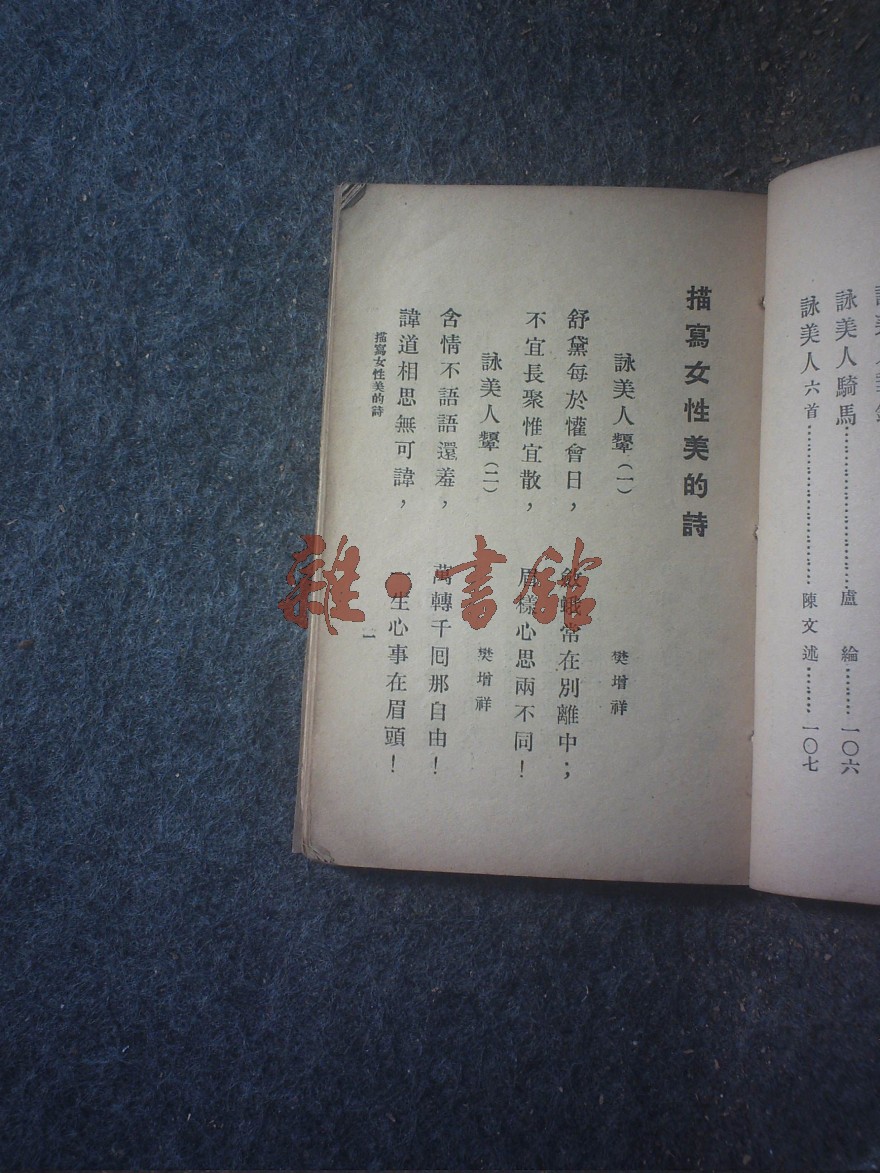 詠美人騎馬⋯⋯⋯⋯⋯⋯⋯⋯盧綸⋯⋯⋯一〇六
詠美人六首⋯⋯⋯⋯⋯⋯⋯⋯陳文述⋯⋯⋯一〇七
描寫女性美的詩
詠美人顰(一) 樊增祥
舒黛每於懽會日, 斂蛾常在別離中;
不宜長聚惟宜散, 眉樣心思兩不同!
詠美人顰(二) 樊增祥
含情不語語還羞, 萬轉千囘那自由!
諱道相思無可諱, 一生心事在眉頭!
描寫女性美的詩 一
雜·書館